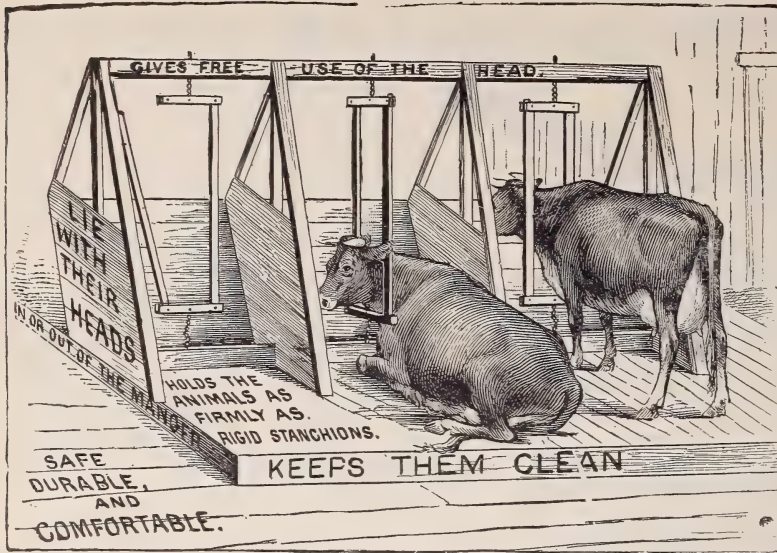 GIVES FREE USE OF THE HEAD.
LIE
WITH
THEIR
HEADS
IN OR OUT OF THE MANGER
HOLDS THE
ANIMALS AS
FIRMLY AS.
RIGID STANCHIONS.
KEEPS THEM CLEAN
SAFE
DURABLE,
AND
COMFORTABLE.